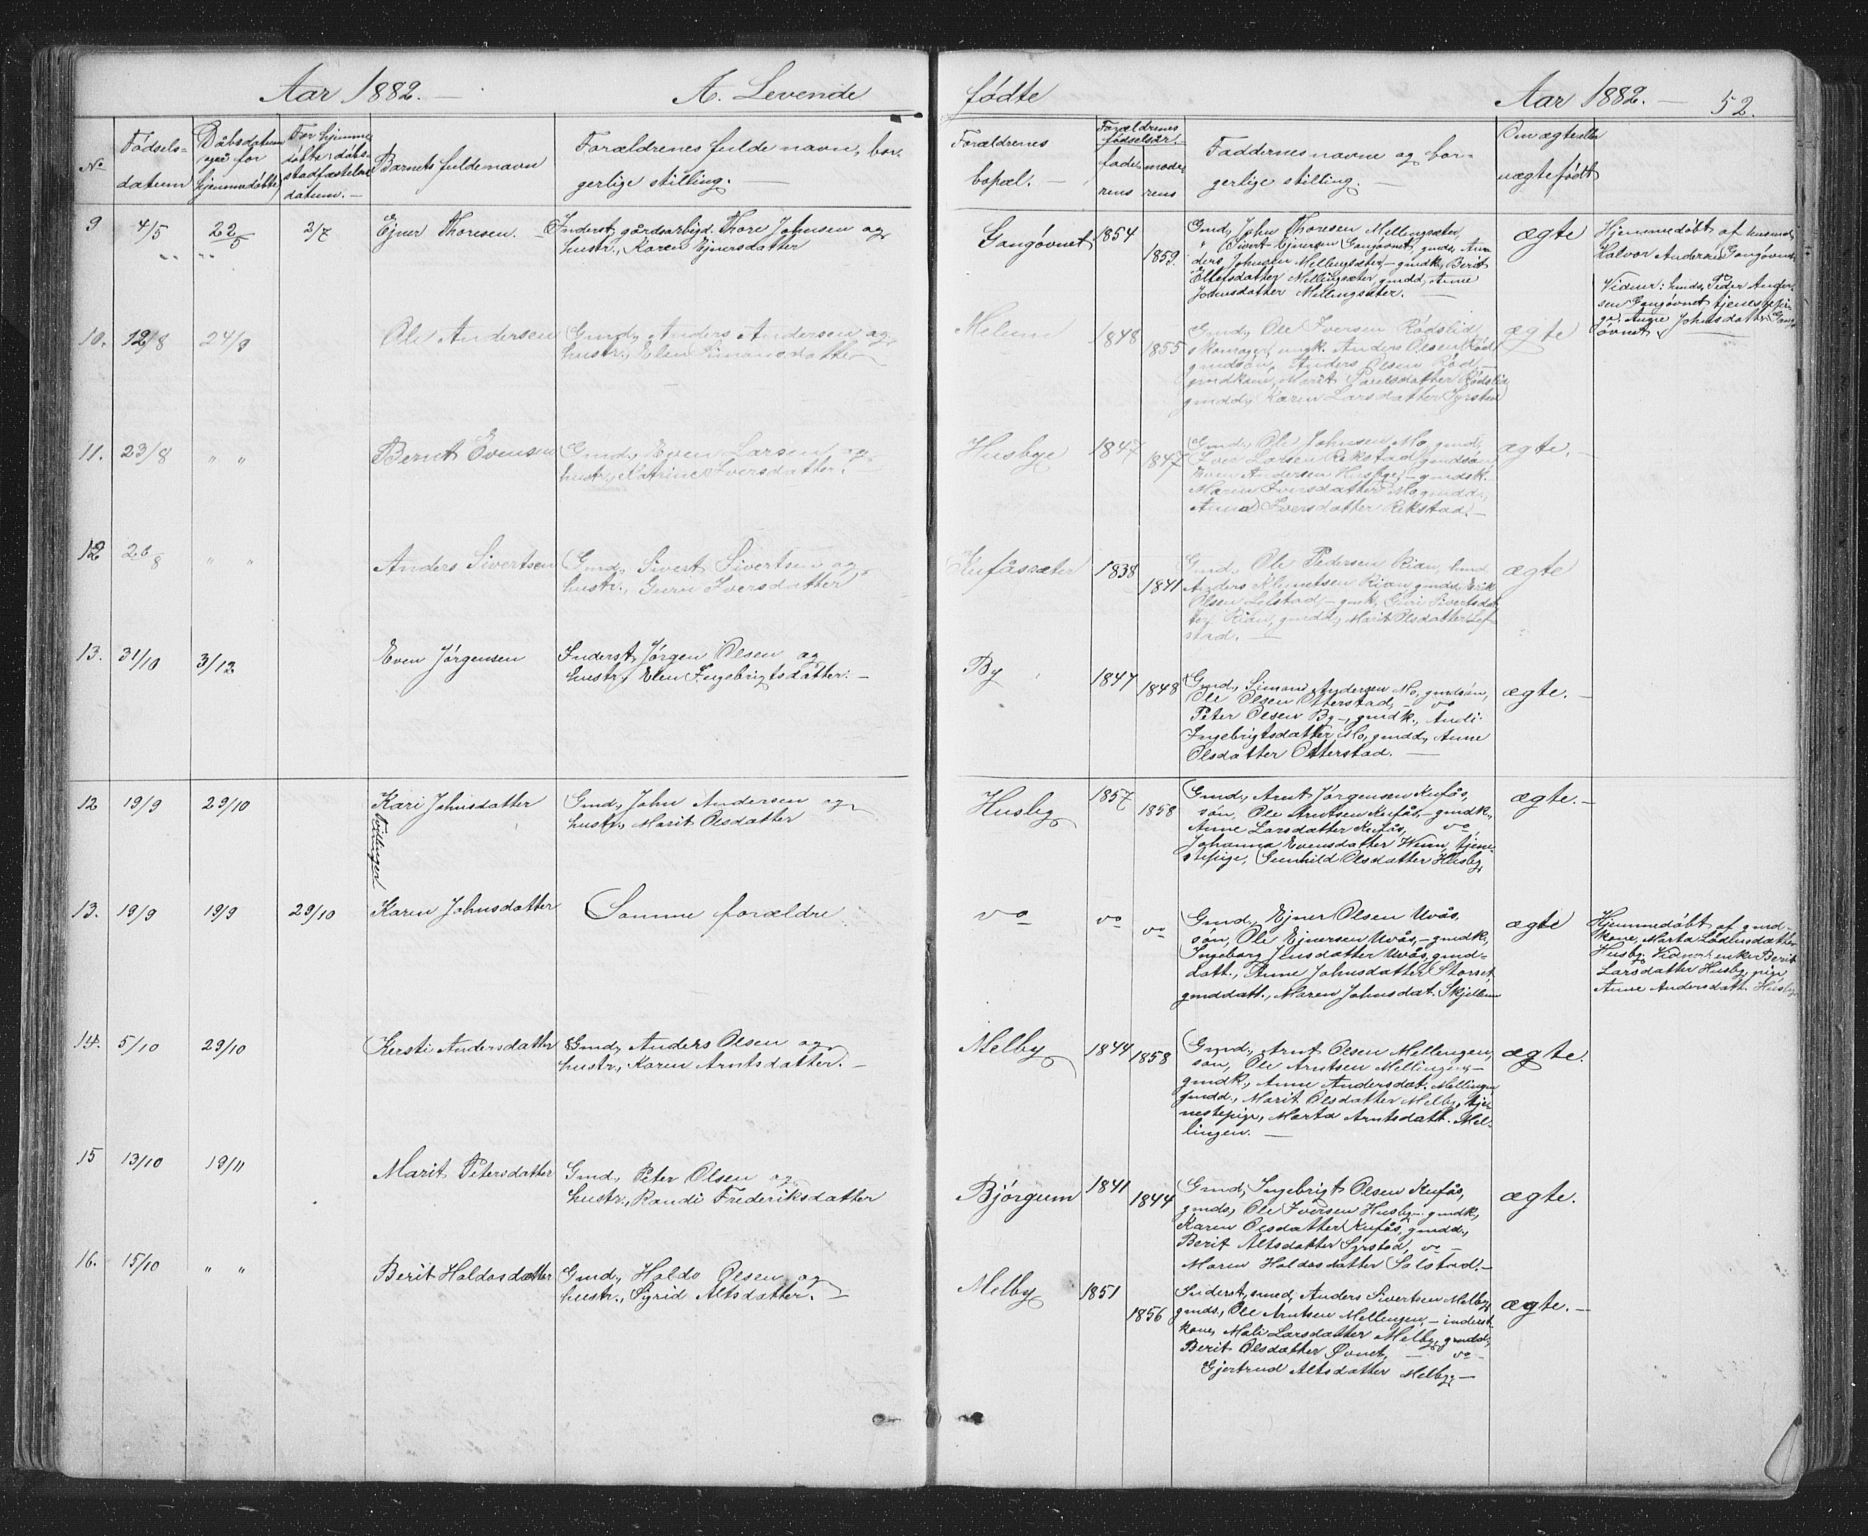 Aar 1882. — A. Levende fødte Aar 1882. — 52.
No
Fødsels-
datum
Dåbsdatum
også for
hjemmedøbte
For hjemme
døbte: dåbs
stadfæstelses
datum. —
Barnets fulde navn
Forældrenes fulde navn, bor-
gerlige stilling. —
Forældrenes
bopæl. —
Forældrenes
fødselsår. —
fade
rens
mode
rens
Faddernes navne og bor-
gerlige stilling. —
Om ægte eller
uægte født
9 4/5 22/5 2/7
Ejner Thoresen. —
Inderst, gårdsarbejd. Thore Johnsen og
hustr., Karen Ejnersdatter
Gangøvnet
1854
1859.
Gmd, John Thoresen Mellingsæter,
" Sivert Ejnersen Gangøvnet, gmds, An-
ders Johnsen Mellingsæter, — gmdk, Berit
Ellefsdatter Mellingsæter, gmdd, Anne
Johnsdatter Mellingsæter. —
ægte
Hjemmedøbt af husmd
Halvor Andersen Gangøvnet
Vidner: husmd, Peder Ander-
sen Gangøvnet tjenestepi-
ge, Anne Johnsdatter Gang-
øvnet
10. 12/8 24/9
Ole Andersen
Gmd, Anders Andersen og
hustr., Elen Simonsdatter
Melum
1848
1855
Gmd, Ole Iversen Rødslid
skomager, ungk. Anders Olsen Rød
gmdsøn, Anders Olsen Rød, —
gmdkone, Marit Sørelsdatter Rødslid
gmdd, Karen Larsdatter Syrstad
ægte
11. 23/8 " "
Bernt Evensen
Gmd, Even Larsen og
hustr., Katrine Iversdatter. —
Husbye
1847
1847
Gmd, Ole Johnsen Mo, gmd,
Iver Larsen Rekstad, gmdsøn,
Even Andersen Husbye, — gmdsk.
Maren Iversdatter Mo, gmdd,
Anne Iversdatter Rekstad. —
ægte. —
12 26/8 " "
Anders Sivertsen
Gmd, Sivert Sivertsen og
hustr., Guru Iversdatter
Kufåsæter
1838
1841
Gmd, Ole Pedersen Rian, husmd
Anders Klemetsen Rian, gmdd, Erik
Olsen Lefstad, — gmk, Guri Sivertsdat-
ter, Rian, gmdd, Marit Olsdatter Lef-
stad. —
ægte
13. 31/10 3/12
Even Jørgensen
Inderst, Jørgen Olsen og
hustr., Elen Ingebrigtsdatter. —
By
1847
1848
Gmd, Simon Andersen Mo, gmdsøn,
Ole Olsen Otterstad, — do
Peter Olsen By —, gmdk., Andi
Ingebrigtsdatter Mo, gmdd, Anne
Olsdatter Otterstad. —
ægte. —
12 19/9 29/10
Kari Johnsdatter
Tvillinger
Gmd, John Andersen og
hustr., Marit Olsdatter
Husby
1857
1858
Gmd, Arnt Jørgensen Kufås,
søn, Ole Arntsen Kufås, — gmdk,
Anne Larsdatter Kufås, do
Johanna Evensdatter Wum, tjene-
stepige, Gunhild Olsdatter Husby
ægte. —
13. 19/9 19/9 29/10
Karen Johnsdatter
Samme forældre
do
do
do
Gmd, Ejner Olsen Uvås,
søn, Ole Ejnersen Uvås, — gmdk,
Ingeborg Jensdatter Uvås, gmd-
datt., Anne Johnsdatter Storset,
gmddatt., Maren Johnsdat. Skjellum
ægte
Hjemmedøbt af gmd-
kone, Marta Lødensdatter
Husby. Vidner enke Berit
Larsdatter Husby, pige
Anne Andersdatt. Husby
14. 5/10 29/10
Kersti Andersdatter
Gmd, Anders Olsen og
hustr., Karen Arntsdatter. —
Melby
1844
1858
Gmd, Arnt Olsen Mellingen,
søn, Ole Arntsen Mellingen, —
gmdk, Anne Andersdat. Mellingen
gmdd., Marit Olsdatter Melby, tje-
nestepige, Marta Arntsdatt. Mel-
lingen. —
ægte.
15 13/10 19/11
Marit Petersdatter
Gmd, Peter Olsen og
hustr., Randi Frederiksdatter
Bjørgum
1841
1844
Gmd, Ingebrigt Olsen Kufås,
gmds, Ole Iversen Husby — gmdk,
Karen Olsdatter Kufås, gmdd,
Berit Altsdatter Syrstad, do —
Maren Haldosdatter Solstad. —
ægte.
16. 15/10 " "
Berit Haldosdatter
Gmd, Haldo Olsen og
hustr., Sigrid Altsdatter. —
Melby
1851
1856
Inderst, smed, Anders Sivertsen Melby,
gmds, Ole Arntsen Mellingen, — inderst-
kone, Mali Larsdatter Melby, gmdd,
Berit Olsdatter Øvnet, — do —
Gjertrud Altsdatter Melby —
ægte. —